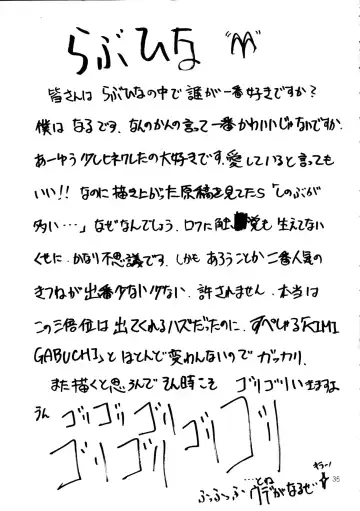 らぶひな
皆さんは らぶひなの中で誰が一番好きですか?
僕は なるです。なんのかんの言って一番かわいいじゃないですか。
あーゆう少しヒネクレたの大好きです。愛していると言っても
いい!! なのに描き上がった原稿を見てたら「しのぶが
多い…」なぜなんでしょう。ロフに触覚も生えてない
くせに。かなり不思議です。しかも あろうことか二番人気の
きつねが出番少ない少ない。許されません。本当は
この三倍位は出てくれるハズだったのに。すぺしゃる「KIMI
GABUCHI」とほとんど変わんないのでガッカリ。
また描くと思うんでそん時こそ ゴリゴリいきますよ
うん
ゴリ ゴリ ゴリ ゴリ ゴリ
ゴリ ゴリ ゴリ
ふっふっふ…とね
ウデがなるぜ…
キラーン
35